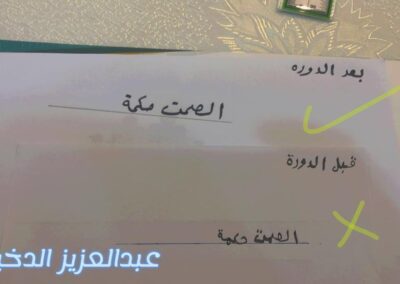 بعد الدوره
الصمت حكمة
قبل الدورة
الصمت حكمة
عبدالعزيز